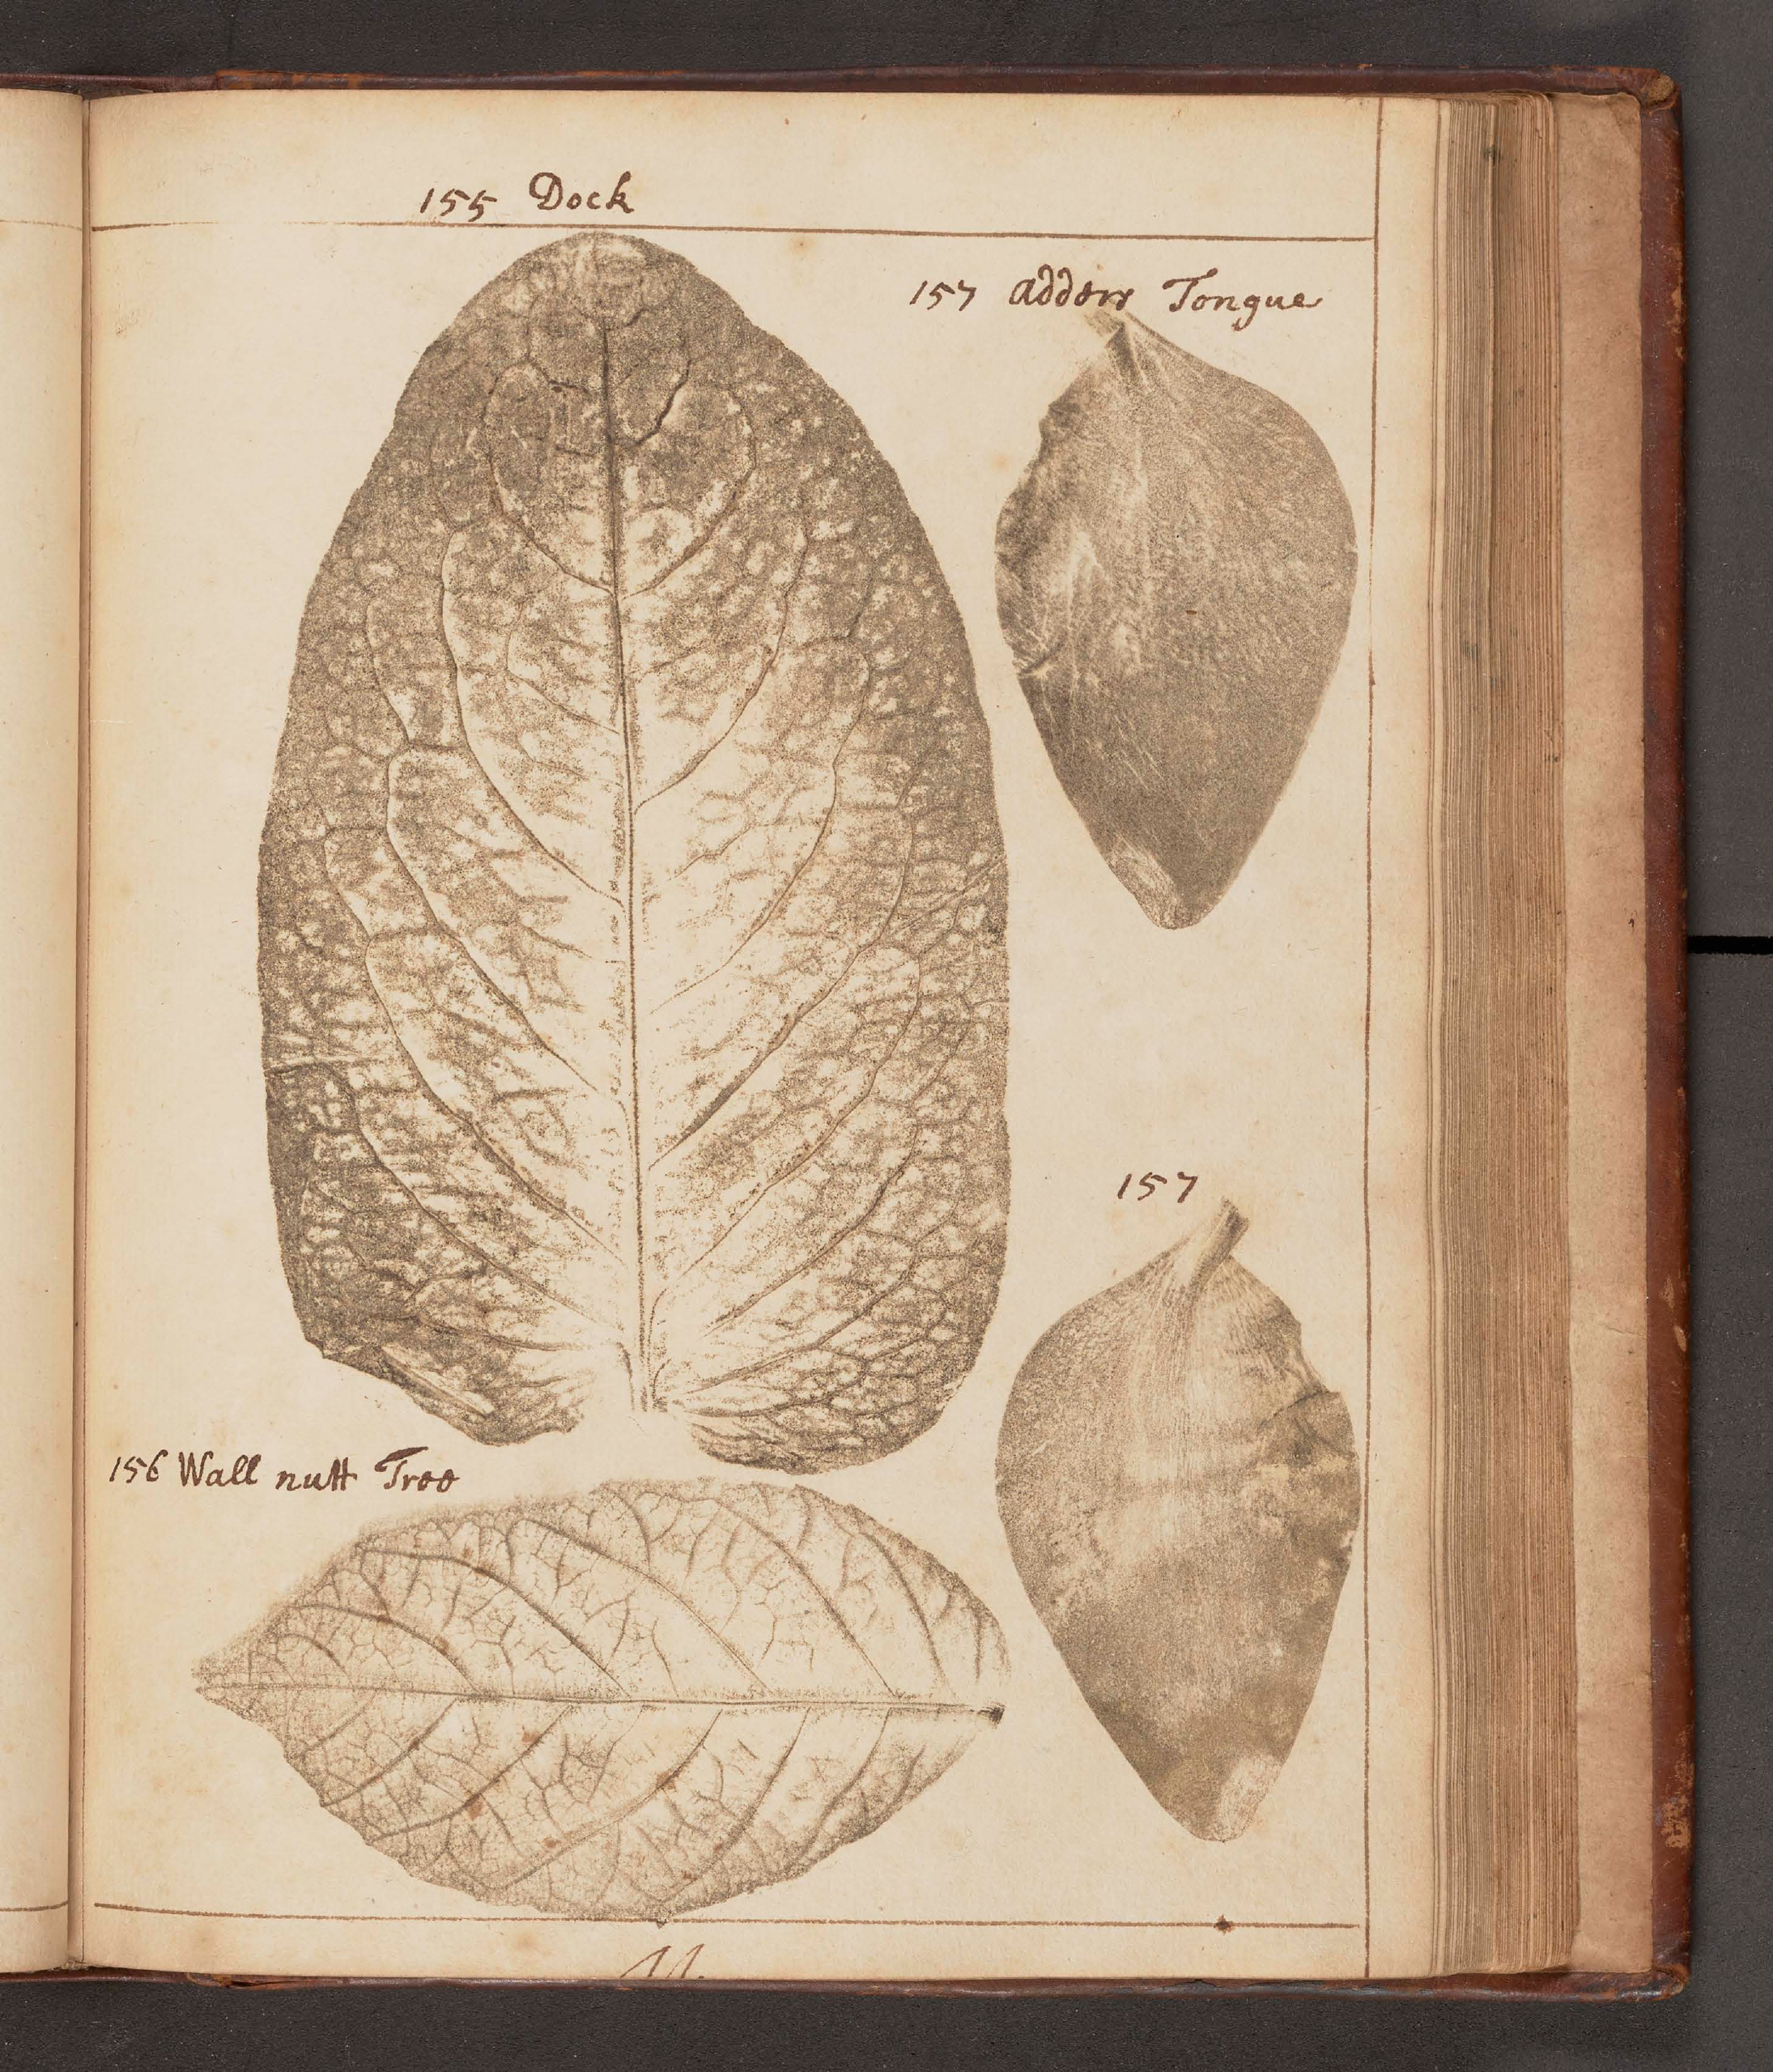 155 Dock
157 adders Tongue
157
156 Wall nutt Tree